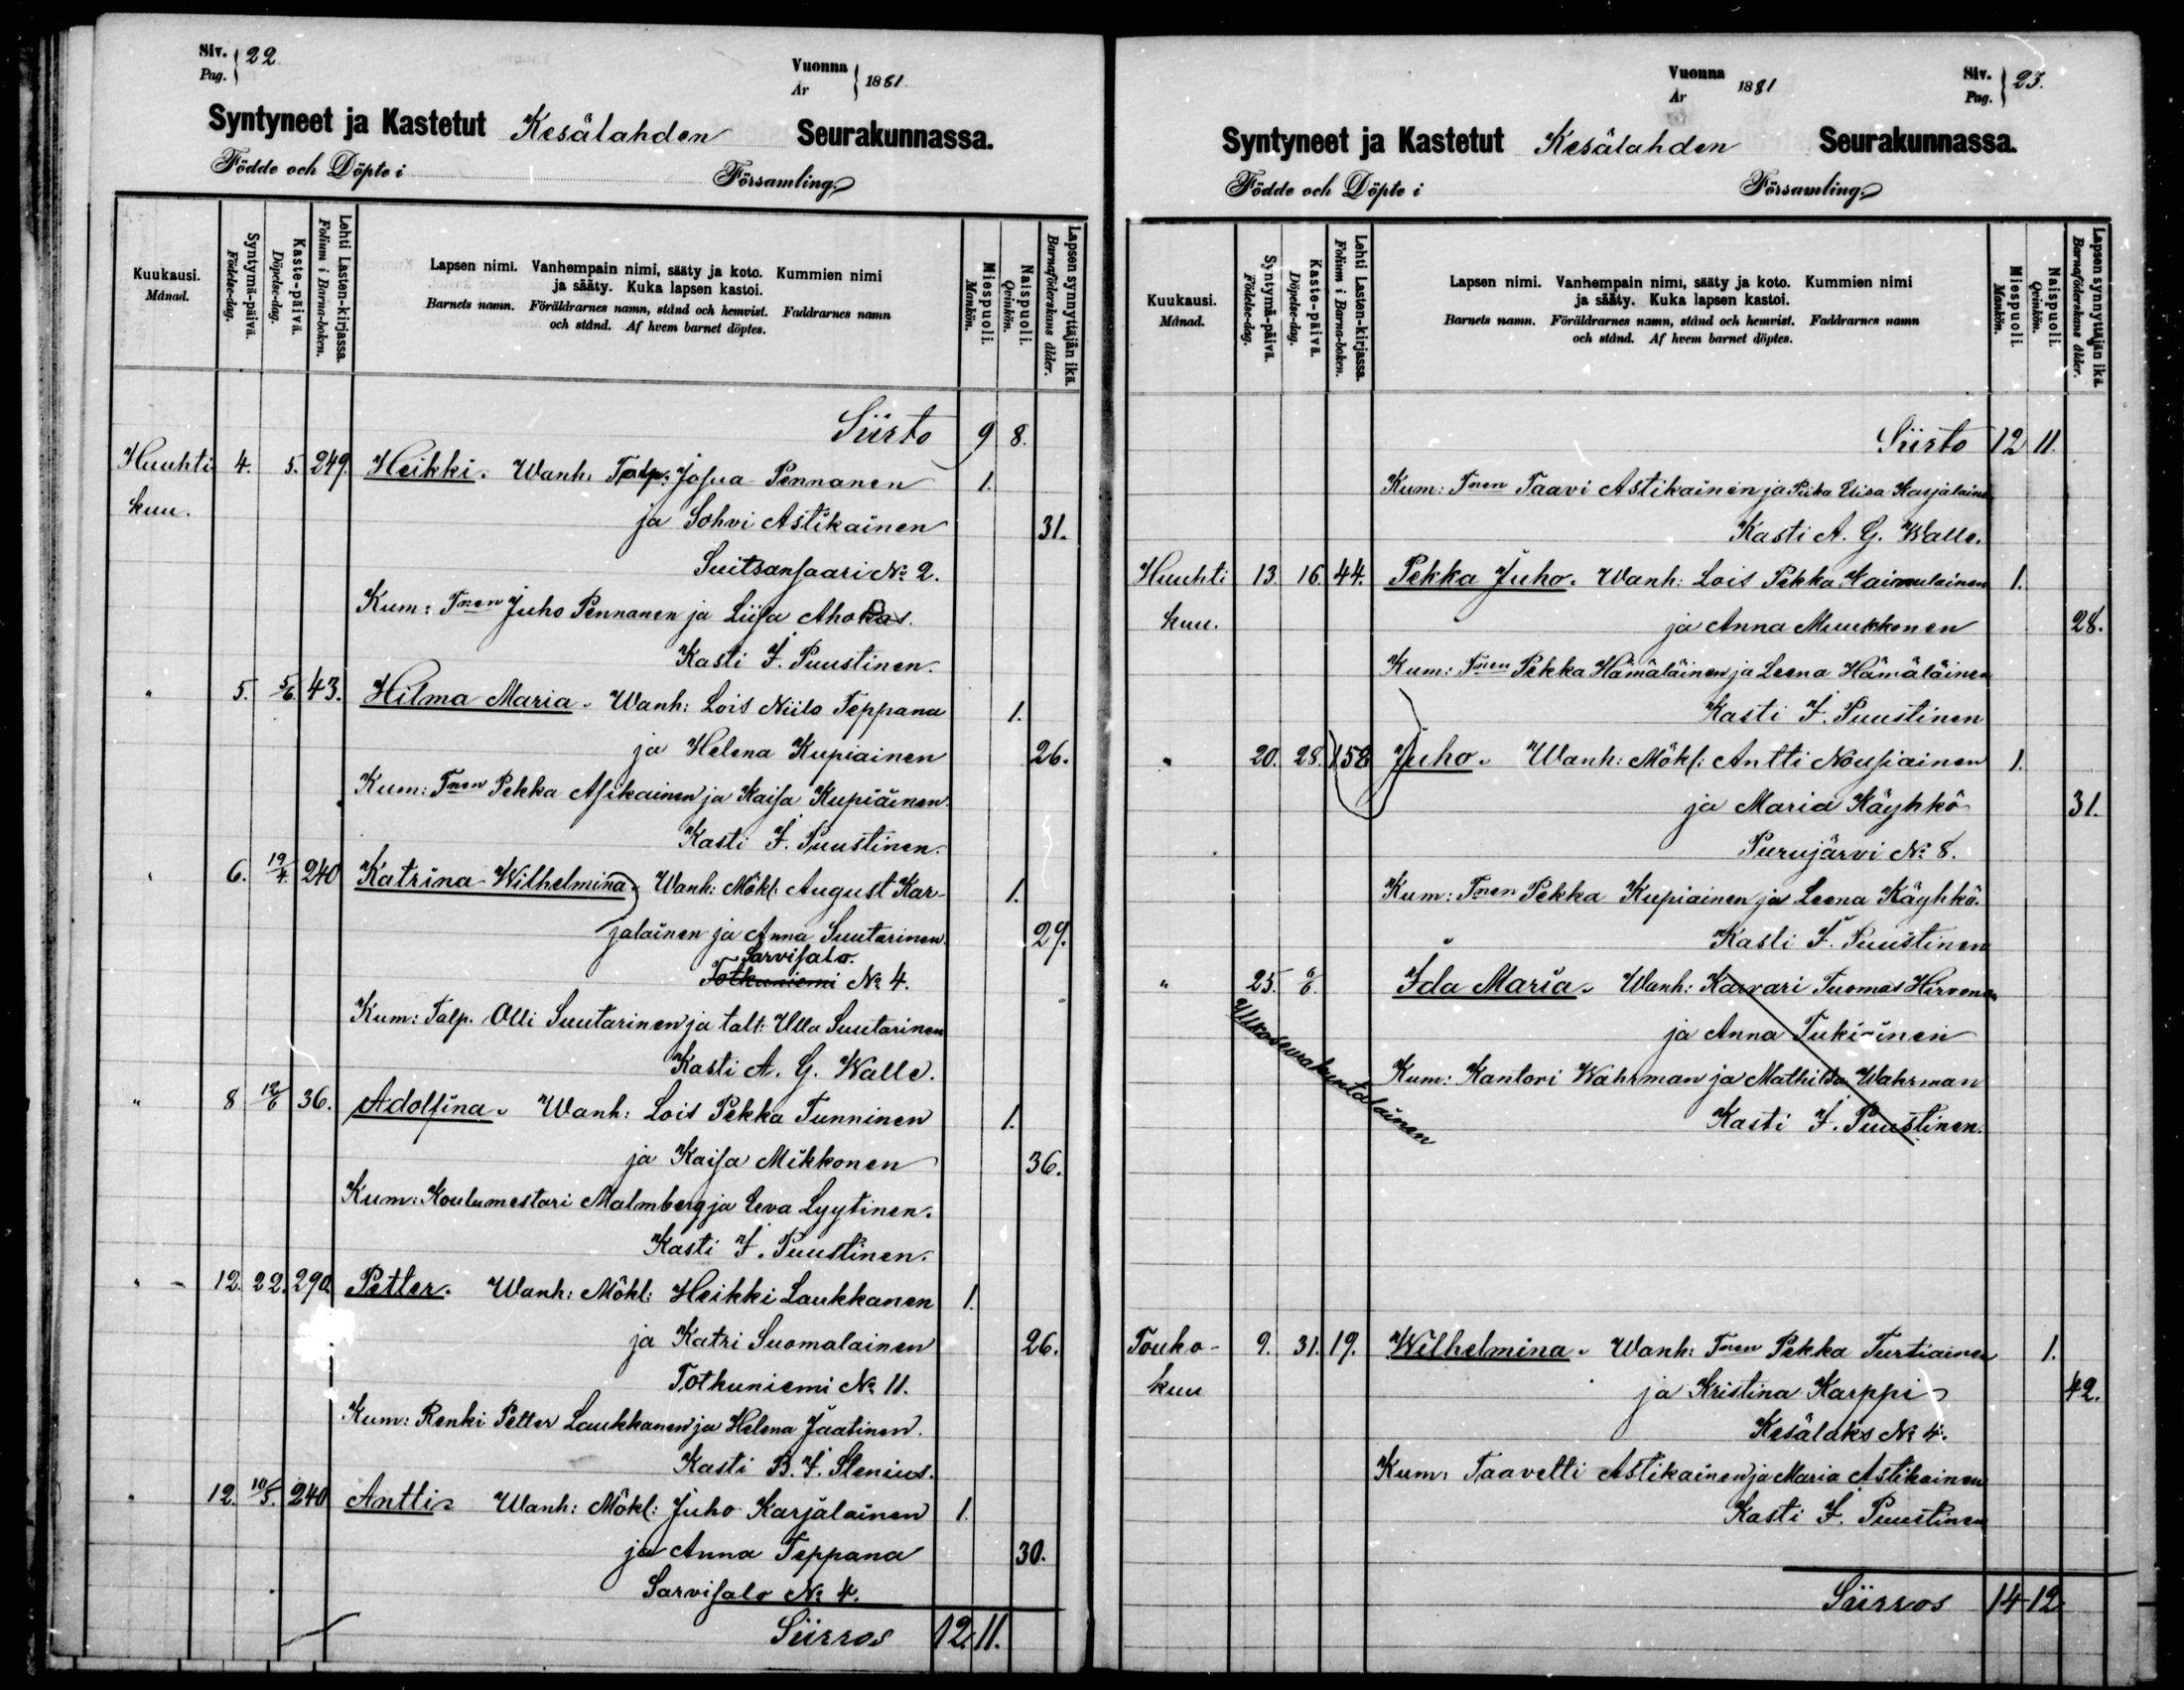 Siv. 22.
Pag.
Vuonna 1881.
Ar
Syntyneet ja Kastetut Kesälahden Seurakunnassa.
Födde och Döpte i Församling.
Kuukausi. Månad.
Syntymä-päivä. Födelse-dag.
Kaste-päivä. Döpelse-dag.
Lehti Lasten-kirjassa. Folium i Barna-boken.
Lapsen nimi. Vanhempain nimi, sääty ja koto. Kummien nimi
ja sääty. Kuka lapsen kastoi.
Barnets namn. Föräldrarnes namn, stånd och hemvist. Faddrarnes namn
och stånd. Af hvem barnet döptes.
Miespuoli. Mankön.
Naispuoli. Qvinkön.
Lapsen synnyttäjän ikä. Barnaföderskans ålder.
Siirto 9 8.
Huuhti 4. 5. 249. Heikki. Wanh: Talp: Josua Pennanen 1.
kuu. ja Sohvi Astikainen 31.
Suitsansaari No 2.
Kum: Tnen Juho Pennanen ja Liisa Ahokas.
Kasti F. Puustinen.
" 5. 5/6 43. Hilma Maria. Wanh: Lois Niilo Teppana 1.
ja Helena Kupiainen 26.
Kum: Tnen Pekka Asikainen ja Kaisa Kupiainen.
Kasti F. Puustinen.
" 6. 19/4. 240 Katrina Wilhelmina. Wanh: Mökl: August Kar- 1.
jalainen ja Anna Suutarinen. 29.
Sarvisalo.
Totkuniemi No 4.
Kum: Talp. Olli Suutarinen ja talt: Ulla Suutarinen
Kasti A. G. Walle.
" 8 12/6 36. Adolfina. Wanh: Lois Pekka Tunninen 1.
ja Kaisa Mikkonen 36.
Kum: Koulumestari Malmberg ja Eeva Lyytinen.
Kasti F. Puustinen.
" 12. 22. 290. Petter. Wanh: Mökl: Heikki Laukkanen 1.
ja Katri Suomalainen 26.
Totkuniemi No 11.
Kum: Renki Petter Laukkanen ja Helena Jaatinen.
Kasti B. F. Stenius.
" 12. 10/5. 240 Antti. Wanh: Mökl: Juho Karjalainen 1.
ja Anna Teppana 30.
Sarvisalo No 4.
Siirros 12. 11.
Vuonna 1881
Ar
Siv. 23.
Pag.
Syntyneet ja Kastetut Kesälahden Seurakunnassa.
Födde och Döpte i Församling.
Kuukausi. Månad.
Syntymä-päivä. Födelse-dag.
Kaste-päivä. Döpelse-dag.
Lehti Lasten-kirjassa. Folium i Barna-boken.
Lapsen nimi. Vanhempain nimi, sääty ja koto. Kummien nimi
ja sääty. Kuka lapsen kastoi.
Barnets namn. Föräldrarnes namn, stånd och hemvist. Faddrarnes namn
och stånd. Af hvem barnet döptes.
Miespuoli. Mankön.
Naispuoli. Qvinkön.
Lapsen synnyttäjän ikä. Barnaföderskans ålder.
Siirto 12 11.
Kum: Tnen Taavi Astikainen ja Piika Elisa Karjalainen
Kasti A. G. Walle.
Huuhti 13 16 44. Pekka Juho. Wanh: Lois Pekka Kaimulainen 1.
kuu. ja Anna Muukkonen 28.
Kum: Tnen Pekka Hämäläinen ja Leena Hämäläinen
Kasti F. Puustinen
" 20. 28. 158 Juho. Wanh: Mökl: Antti Nousiainen 1.
ja Maria Käyhkö 31.
Purujärvi No 8.
Kum: Tnen Pekka Kupiainen ja Leena Käyhkö.
Kasti F. Puustinen
" 25. Ida Maria. Wanh: Karvari Tuomas Hirvonen
Ulkoseurakuntalainen
ja Anna Tukiainen
Kum: Kantori Wahrman ja Mathilda Wahrman
Kasti F. Puustinen.
Touko- 9. 31. 19. Wilhelmina. Wanh: Tnen Pekka Turtiainen 1.
kuu ja Kristina Karppi 42.
Kesälaks No 4.
Kum: Taavetti Astikainen ja Maria Astikainen
Kasti F. Puustinen
Siirros 14 12